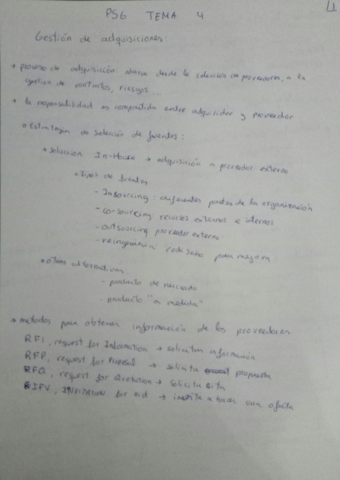 PSG TEMA 4
1
Gestión de adquisiciones
• proceso de adquisición abarca desde la selección de proveedores, a la
gestión de contratos, riesgos...
• la responsabilidad es compartida entre adquiridor y proveedor
• Estrategia de selección de fuentes:
• Selección In-House → adquisición a proveedor externo
• Tipos de fuentes
- Insourcing: diferentes partes de la organización
- co-sourcing recursos externos e internos
- outsourcing proveedor externo
- reingeniería rediseño para mejora
• otras alternativas
- producto de mercado
- producto "a medida"
• métodos para obtener información de los proveedores
RFI, request for Information → solicitan información
RFP, request for Proposal → solicita propuesta
RFQ, request for Quotation → Solicita
IFB, Invitation for bid → invita a hacer una oferta